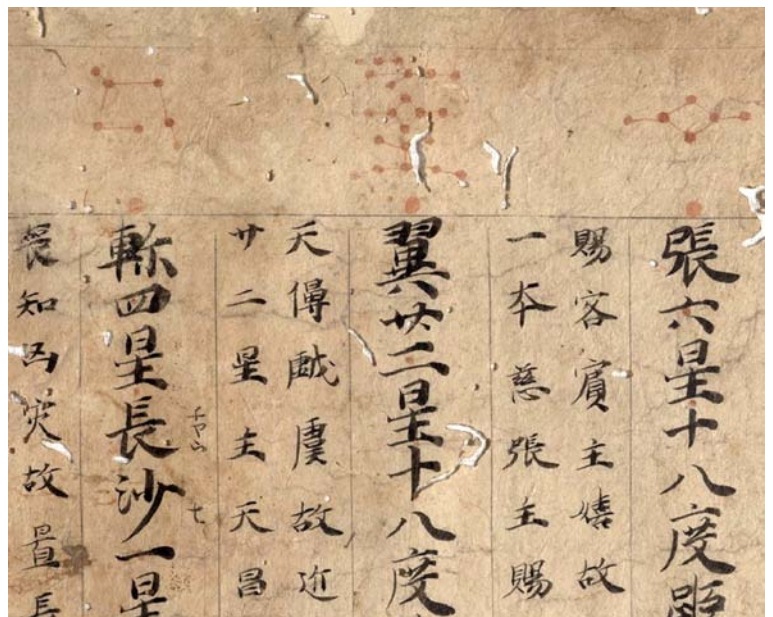 張六星十八度距
賜客賓主嬉故
一本慈張主賜
翼廿二星十八度
天倡戱虞故近
廿二星主天昌
軫四星長沙一星
知凶災故置長